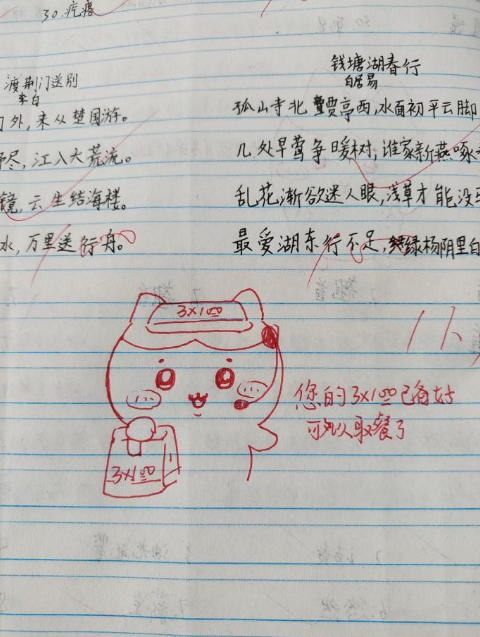 30. 疙瘩
渡荆门送别
李白
门外，来从楚国游。
尽，江入大荒流。
镜，云生结海楼。
水，万里送行舟。
钱塘湖春行
白居易
孤山寺北贾亭西，水面初平云脚
几处早莺争暖树，谁家新燕啄
乱花渐欲迷人眼，浅草才能没
最爱湖东行不足，绿杨阴里白
3×100
您的3×100已备好
可以取餐了
3×100